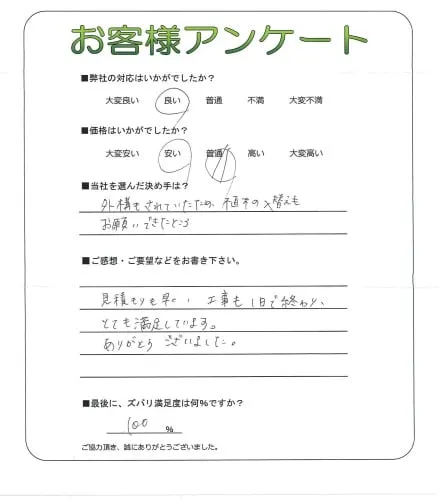 お客様アンケート
■弊社の対応はいかがでしたか？
大変良い 良い 普通 不満 大変不満
■価格はいかがでしたか？
大変安い 安い 普通 高い 大変高い
■当社を選んだ決め手は？
外構もされていたため、植木の入替えも
お願いできたところ
■ご感想・ご要望などをお書き下さい。
見積もりも早く、工事も1日で終わり、
とても満足しています。
ありがとうございました。
■最後に、ズバリ満足度は何％ですか？
100 ％
ご協力頂き、誠にありがとうございました。